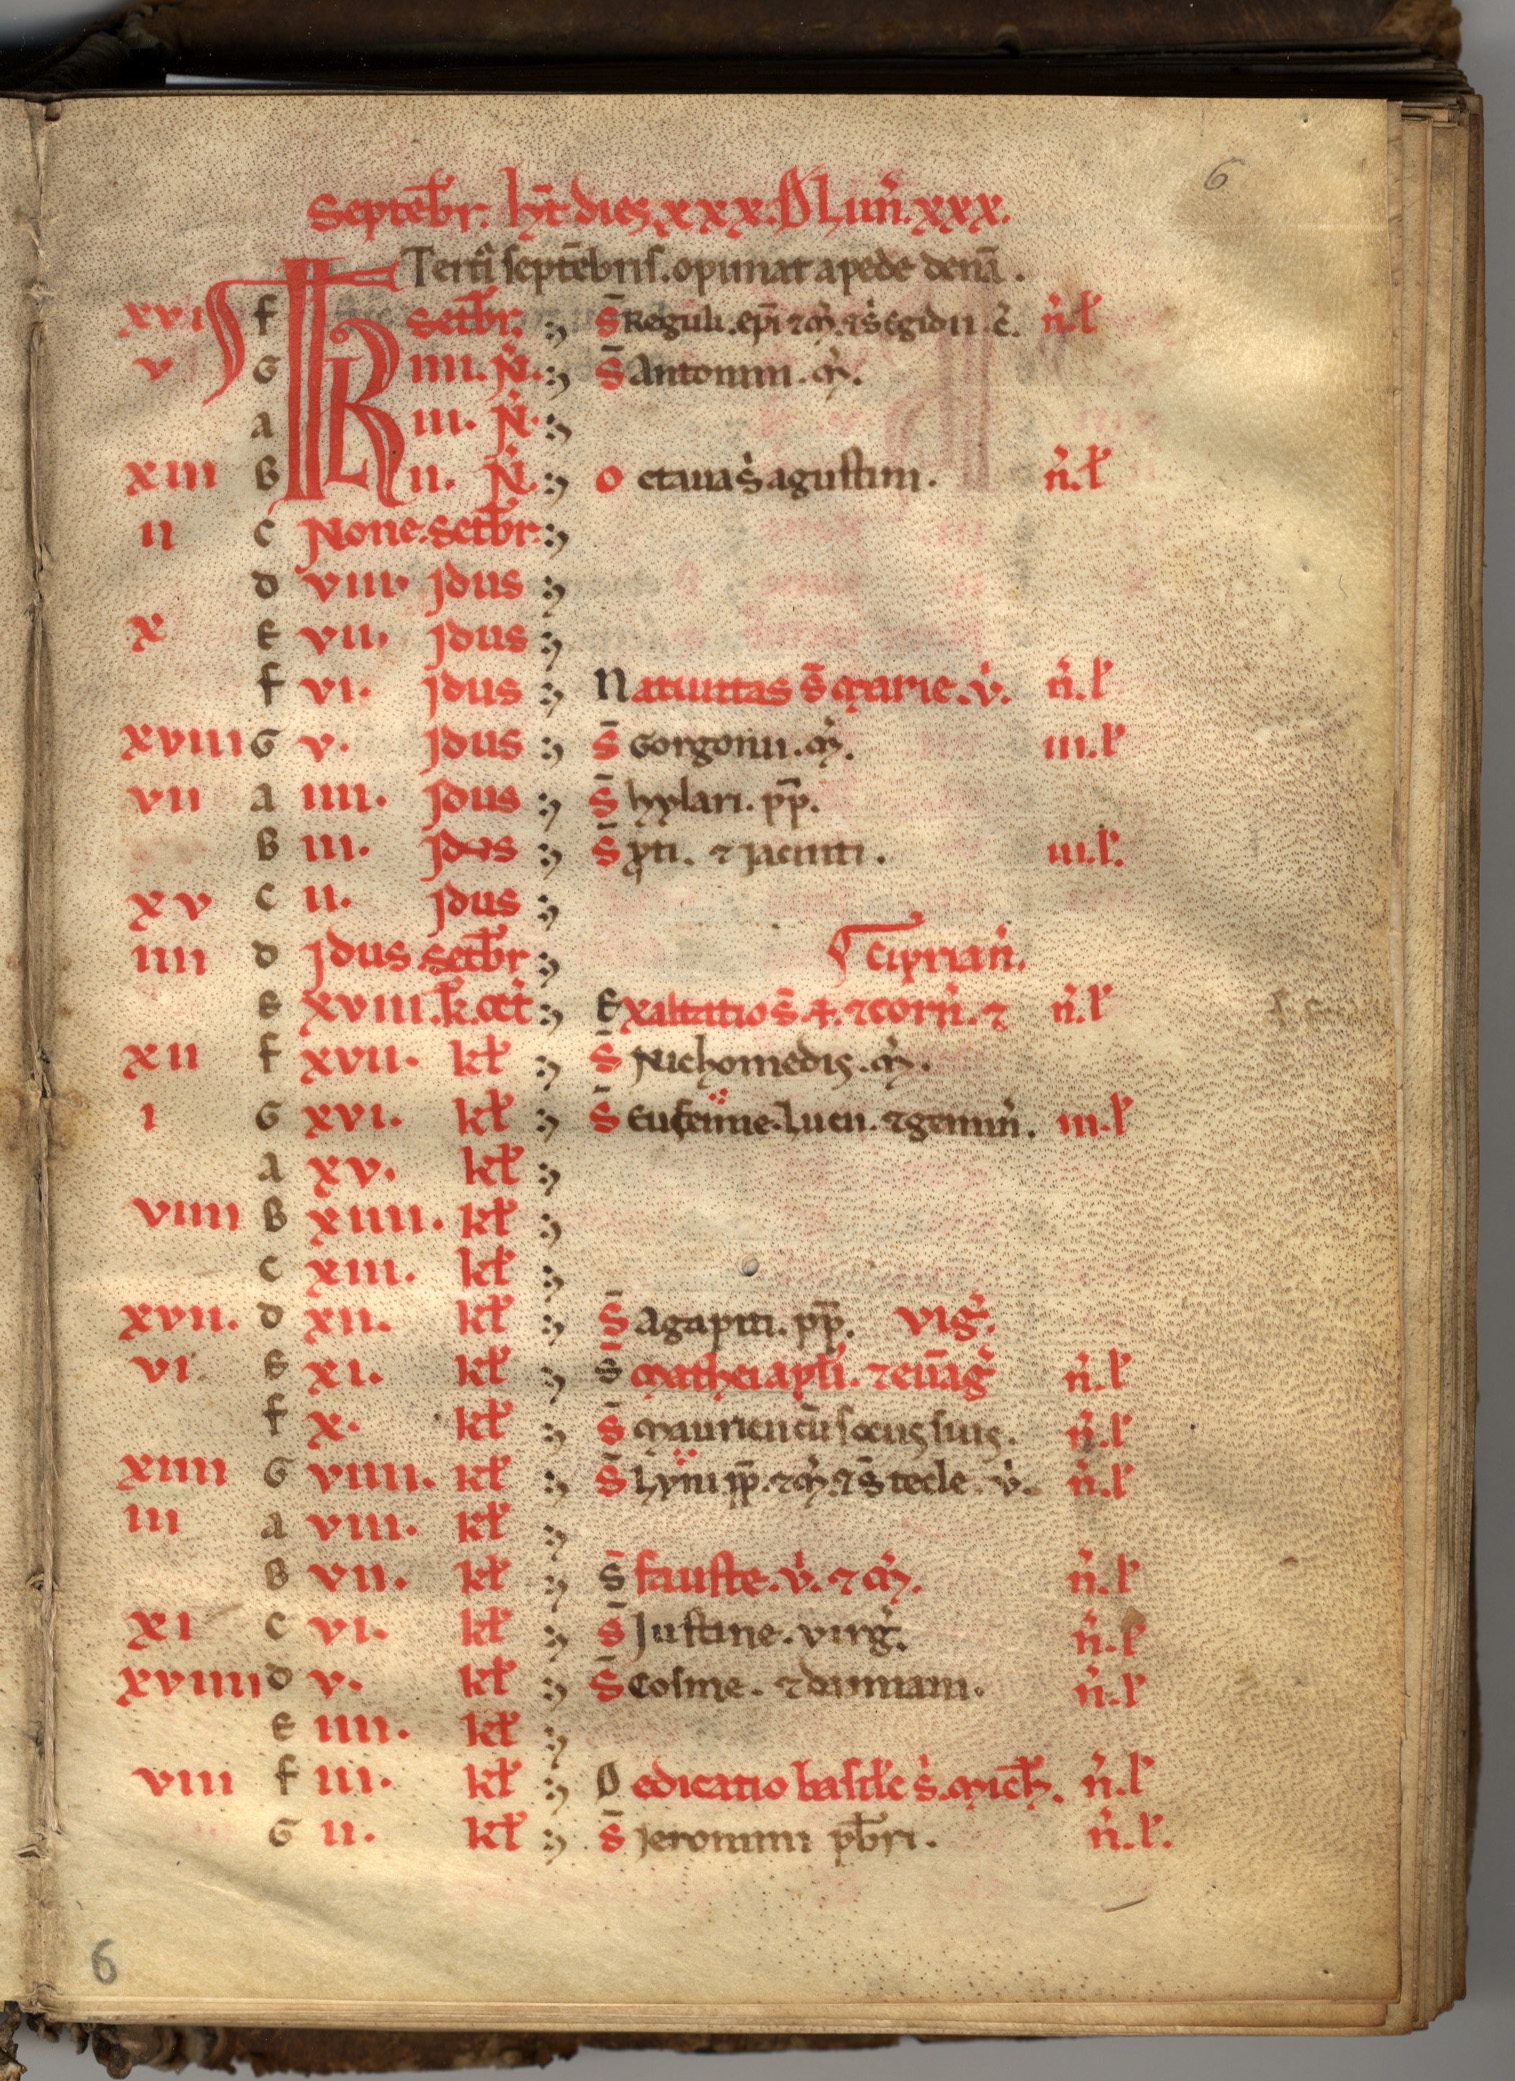 6
Septēbr. hƞt dies xxx. Lun̄. xxx.
Tertiʼ septēbris. opunat a pede denā.
xvi f KL setb̄r. S̄ Reguli. ep̄i ⁊ m̄. ⁊ s̄ Egidii. c̄. n̄. l̄
v G iiii. N̄. S̄ Antonini. m̄.
a iii. N̄.
xiii B ii. N̄. Octaua s̄ agustini. n̄. l̄
ii c None. setb̄r.
d viii. Idus
x E vii. Idus
f vi. Idus Natiuitas s̄ marie. v̄. n̄. l̄
xviii G v. Idus S̄ Gorgonii. m̄. iii. l̄
vii a iiii. Idus S̄ hylari. pp̄.
B iii. Idus S̄ ꝓti. ⁊ Jacinti. iii. l̄.
xv c ii. Idus
iiii d Idus setb̄r Ciprian̄.
E xviii. k̄. oct̄ Exaltatio s̄ ✝. ⁊ corn̄. ⁊ n̄. l̄
xii f xvii. kl̄ S̄ Nichomedis. m̄.
i G xvi. kl̄ S̄ Eufemie. Lucii. ⁊ gemin̄. iii. l̄
a xv. kl̄
viiii B xiiii. kl̄
c xiii. kl̄
xvii. d xii. kl̄ S̄ Agapiti. pp̄. viḡ.
vi E xi. kl̄ S̄ mathei apl̄i. ⁊ euāḡ n̄. l̄
f x. kl̄ S̄ mauricii cū sociis suis. n̄. l̄
xiiii G viiii. kl̄ S̄ Lyni pp̄. ⁊ m̄. ⁊ s̄ tecle. v̄. n̄. l̄
iii a viii. kl̄
B vii. kl̄ S̄ fauste. v̄. ⁊ m̄. n̄. l̄
xi c vi. kl̄ S̄ Justine. virḡ. n̄. l̄
xviiii d v. kl̄ S̄ Cosme. ⁊ damiani. n̄. l̄
E iiii. kl̄
viii f iii. kl̄ Dedicatio basilc̄ s̄. mich̄. n̄. l̄
G ii. kl̄ S̄ Jeronimi pb̄ri. n̄. l̄.
6